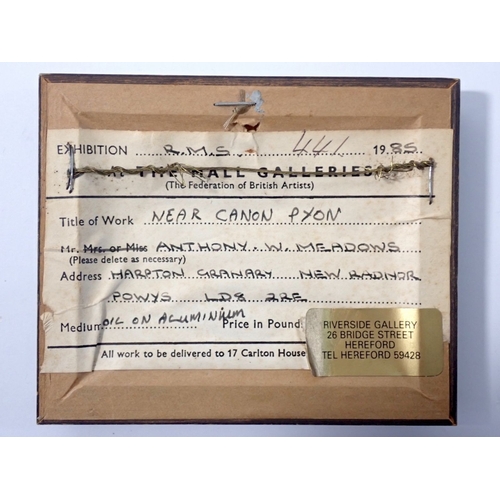 EXHIBITION R.M.S. 441 1985
THE MALL GALLERIES
(The Federation of British Artists)
Title of Work NEAR CANON PYON
Mr. Mrs. or Miss ANTHONY. W. MEADOWS
(Please delete as necessary)
Address HARPTON GRANARY NEW RADNOR
POWYS LD8 2RE
Medium OIL ON ALUMINIUM Price in Pound
All work to be delivered to 17 Carlton House
RIVERSIDE GALLERY
26 BRIDGE STREET
HEREFORD
TEL HEREFORD 59428